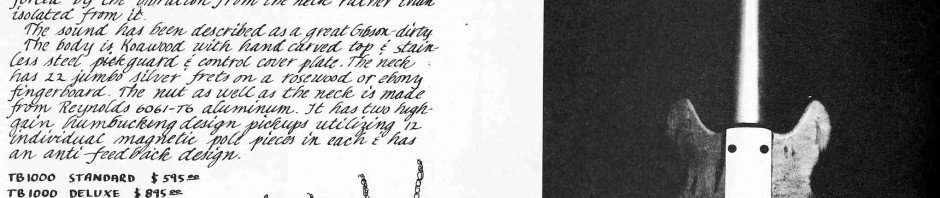 forced by the vibration from the neck rather than
isolated from it.
The sound has been described as a great Gibson-dirty.
The body is Koawood with hand carved top & stain-
less steel pickguard & control cover plate. The neck
has 22 jumbo silver frets on a rosewood or ebony
fingerboard. The nut as well as the neck is made
from Reynolds 6061-T6 aluminum. It has two high-
gain humbucking design pickups utilizing 12
individual magnetic poll pieces in each & has
an anti-feedback design.
TB1000 STANDARD $595.00
TB1000 DELUXE $895.00